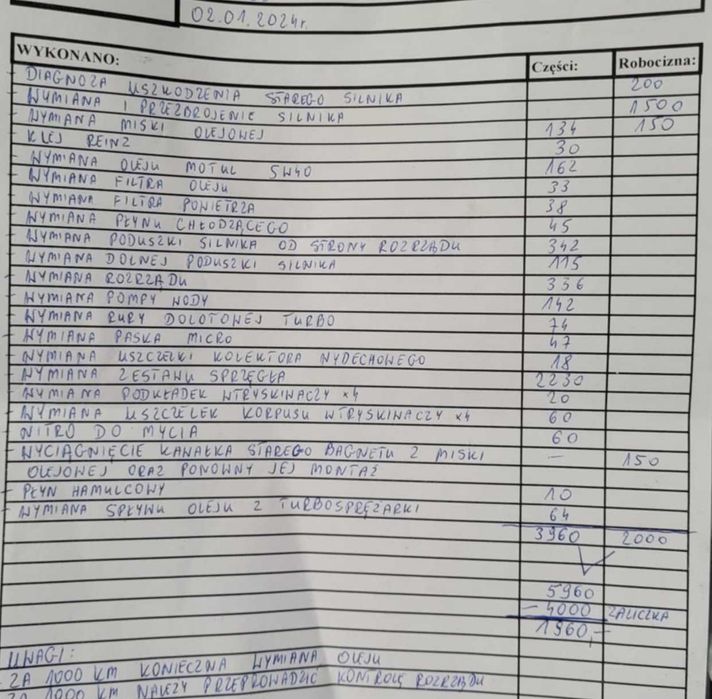 02.01.2024r.
WYKONANO: Części: Robocizna:
- DIAGNOZA USZKODZENIA STAREGO SILNIKA 200
- WYMIANA I PRZEZBROJENIE SILNIKA 1500
- WYMIANA MISKI OLEJOWEJ 134 150
- KLEJ REINZ 30
- WYMIANA OLEJU MOTUL 5W40 162
- WYMIANA FILTRA OLEJU 33
- WYMIANA FILTRA POWIETRZA 38
- WYMIANA PŁYNU CHŁODZĄCEGO 45
- WYMIANA PODUSZKI SILNIKA OD STRONY ROZRZĄDU 342
- WYMIANA DOLNEJ PODUSZKI SILNIKA 115
- WYMIANA ROZRZĄDU 336
- WYMIANA POMPY WODY 142
- WYMIANA RURY DOLOTOWEJ TURBO 74
- WYMIANA PASKA MICRO 47
- WYMIANA USZCZELKI KOLEKTORA WYDECHOWEGO 18
- WYMIANA ZESTAWU SPRZĘGŁA 2230
- WYMIANA PODKŁADEK WTRYSKIWACZY x4 20
- WYMIANA USZCZELEK KORPUSU WTRYSKIWACZY x4 60
- NITRO DO MYCIA 60
- WYCIĄGNIĘCIE KAWAŁKA STAREGO BAGNETU Z MISKI - 150
OLEJOWEJ ORAZ PONOWNY JEJ MONTAŻ
- PŁYN HAMULCOWY 10
- WYMIANA SPŁYWU OLEJU Z TURBOSPRĘŻARKI 64
3960 2000
5960
- 4000 ZALICZKA
1960,-
UWAGI:
- ZA 1000 KM KONIECZNA WYMIANA OLEJU
- ZA 1000 KM NALEŻY PRZEPROWADZIĆ KONTROLĘ ROZRZĄDU